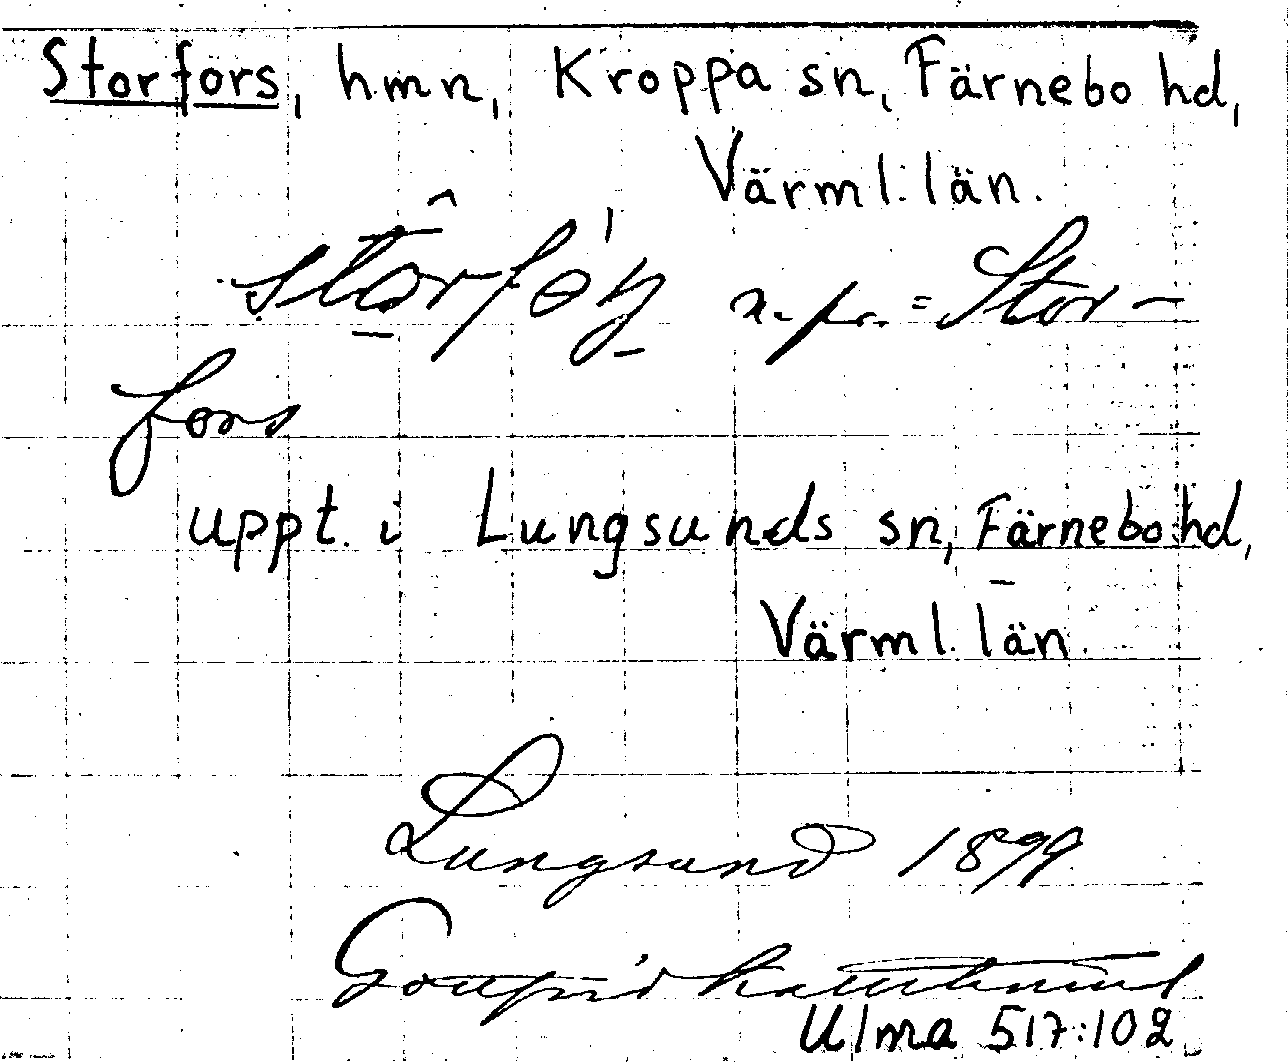 Storfors, hmn, Kroppa sn, Färnebo hd,
Värml. län.
n. pr. = Stor-
fors
uppt. i Lungsunds sn, Färnebo hd,
Värml. län.
Lungsund 1899
Gottfrid Kallstenius
Ulma 517:102.